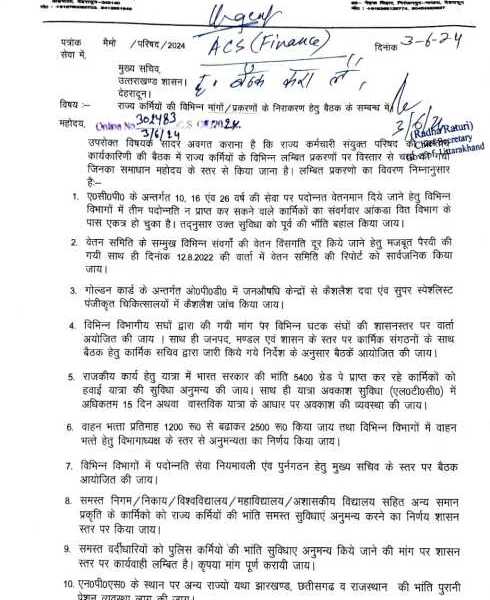 Urgent
पत्रांक मैमो /परिषद/2024
ACS (Finance)
दिनांक 3-6-24
सेवा में,
मुख्य सचिव,
उत्तराखण्ड शासन।
देहरादून।
विषय :— राज्य कर्मियों की विभिन्न मांगों/प्रकरणों के निराकरण हेतु बैठक के सम्बन्ध में
महोदय,
Online No 302483
3/6/24
(Radha Raturi)
Chief Secretary
उपरोक्त विषयक सादर अवगत कराना है कि राज्य कर्मचारी संयुक्त परिषद
कार्यकारिणी की बैठक में राज्य कर्मियों के विभिन्न लम्बित प्रकरणों पर विस्तार से
जिनका समाधान महोदय के स्तर से किया जाना है। लम्बित प्रकरणों का विवरण निम्नानुसार
है:—
1. ए०सी०पी० के अन्तर्गत 10, 16 एंव 26 वर्ष की सेवा पर पदोन्नत वेतनमान दिये जाने हेतु विभिन्न
विभागों में तीन पदोन्नति न प्राप्त कर सकने वाले कार्मिकों का संवर्गवार आंकडा वित विभाग के
पास एकत्र हो चुका है। तद्नुसार उक्त सुविधा को पूर्व की भॉति बहाल किया जाय।
2. वेतन समिति के सम्मुख विभिन्न संवर्गो की वेतन विंसगति दूर किये जाने हेतु मजबूत पैरवी की
गयी साथ ही दिनांक 12.8.2022 की वार्ता में वेतन समिति की रिपोर्ट को सार्वजनिक किया
जाय।
3. गोल्डन कार्ड के अन्तर्गत ओ०पी०डी० में जनऔषधि केन्द्रों से कैशलैश दवा एंव सुपर स्पेश्लिस्ट
पंजीकृत चिकित्सालयों में कैशलैश जांच किया जाय।
4. विभिन्न विभागीय सघों द्वारा की गयी मांग पर विभिन्न घटक संघों की शासनस्तर पर वार्ता
अयोजित की जाय । साथ ही जनपद, मण्डल एवं शासन के स्तर पर कार्मिक संगठनों के साथ
बैठक हेतु कार्मिक सचिव द्वारा जारी किये गये निर्देश के अनुसार बैठकें आयोजित की जाय।
5. राजकीय कार्य हेतु यात्रा में भारत सरकार की भांति 5400 ग्रेड पे प्राप्त कर रहे कार्मिकों को
हवाई यात्रा की सुविधा अनुमन्य की जाय। साथ ही यात्रा अवकाश सुविधा (एल०टी०सी०) में
अधिकतम 15 दिन अथवा वास्तविक यात्रा के आधार पर अवकाश की व्यवस्था की जाय।
6. वाहन भत्ता प्रतिमाह 1200 रू० से बढाकर 2500 रू० किया जाय तथा विभिन्न विभागों में वाहन
भत्ते हेतु विभागाध्यक्ष के स्तर से अनुमन्यता का निर्णय किया जाय।
7. विभिन्न विभागों में पदोन्नति सेवा नियमावली एंव पुर्नगठन हेतु मुख्य सचिव के स्तर पर बैठक
आयोजित की जाय।
8. समस्त निगम/निकाय/विश्वविद्यालय/महाविद्यालय/अशासकीय विद्यालय सहित अन्य समान
प्रकृति के कार्मिकों को राज्य कर्मियों की भांति समस्त सुविधाएं अनुमन्य करने का निर्णय शासन
स्तर पर किया जाय।
9. समस्त वर्दीधारियों को पुलिस कर्मियों की भांति सुविधाए अनुमन्य किये जाने की मांग पर शासन
स्तर पर कार्यवाही लम्बित है। कृपया मांग पूर्ण करायी जाय।
10. एन०पी०एस० के स्थान पर अन्य राज्यों यथा झारखण्ड, छतीसगढ व राजस्थान की भांति पुरानी
पेंशन व्यवस्था लागू की जाय।